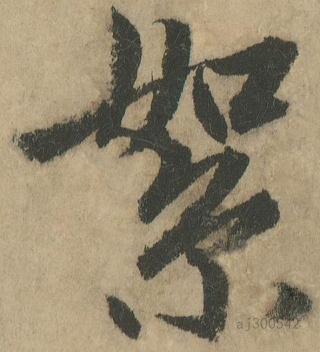 絮
aj300542